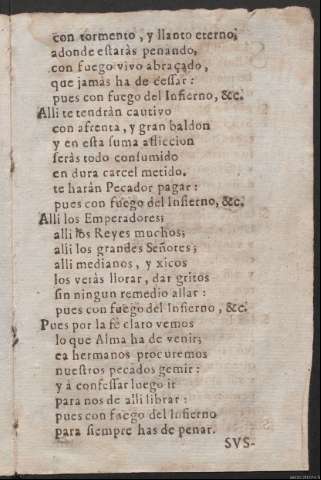 con tormento, y llanto eterno,
adonde estaràs penando,
con fuego vivo abraçado,
que jamàs ha de cessar:
pues con fuego del Infierno, &c.
Alli te tendràn cautivo
con afrenta, y gran baldon
y en esta suma afliccion
seràs todo consumido
en dura carcel metido,
te haràn Pecador pagar:
pues con fuego del Infierno, &c.
Alli los Emperadores;
alli los Reyes muchos;
alli los grandes Señores;
alli medianos, y xicos
los veràs llorar, dar gritos
sin ningun remedio allar:
pues con fuego del Infierno, &c.
Pues por la fè claro vemos
lo que Alma ha de venir;
ea hermanos procuremos
nuestros pecados gemir:
y à confessar luego ir
para nos de alli librar:
pues con fuego del Infierno
para siempre has de penar.
SVS-